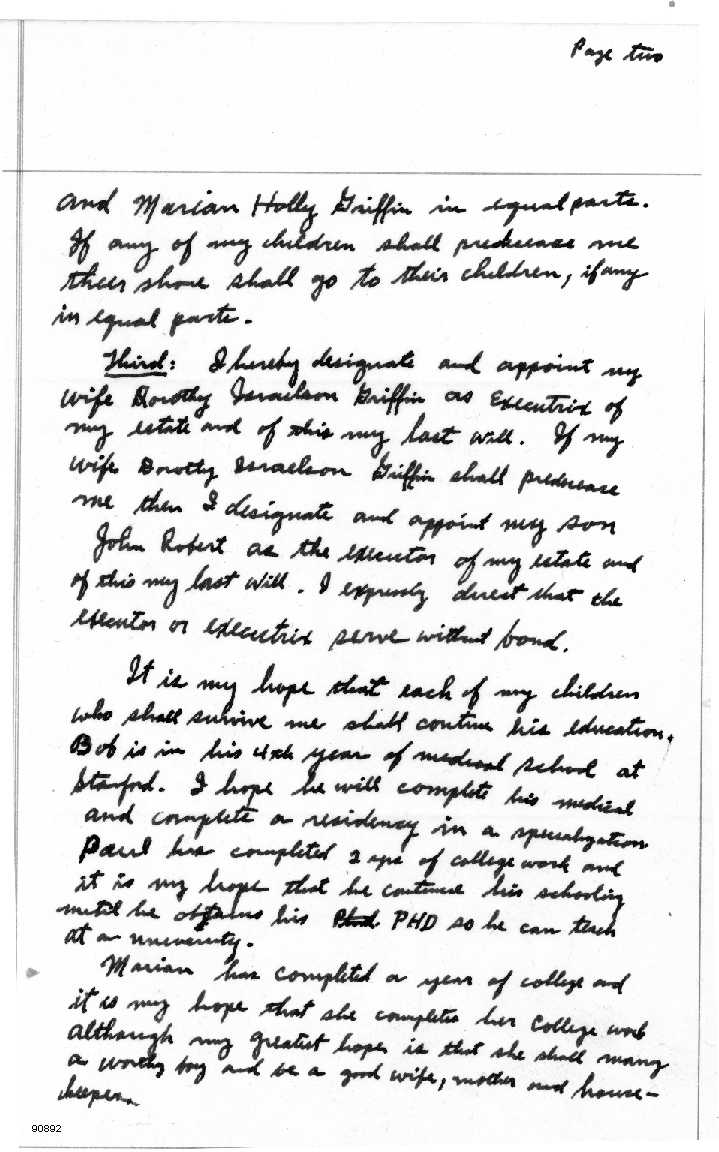 Page two
and Marian Holly Griffin in equal parts.
If any of my children shall predecease me
their share shall go to their children, if any
in equal parts.
Third: I hereby designate and appoint my
wife Dorothy Israelson Griffin as Executrix of
my estate and of this my last will. If my
wife Dorothy Israelson Griffin shall predecease
me then I designate and appoint my son
John Robert as the executor of my estate and
of this my last will. I expressly direct that the
executor or executrix serve without bond.
It is my hope that each of my children
who shall survive me shall continue his education.
Bob is in his 4th year of medical school at
Stanford. I hope he will complete his medical
and complete a residency in a specialization
Paul has completed 2 yrs of college work and
it is my hope that he continue his schooling
until he obtains his PHD so he can teach
at a university.
Marian has completed a year of college and
it is my hope that she completes her College work
although my greatest hope is that she shall marry
a worthy boy and be a good wife, mother and house-
keeper.
90892